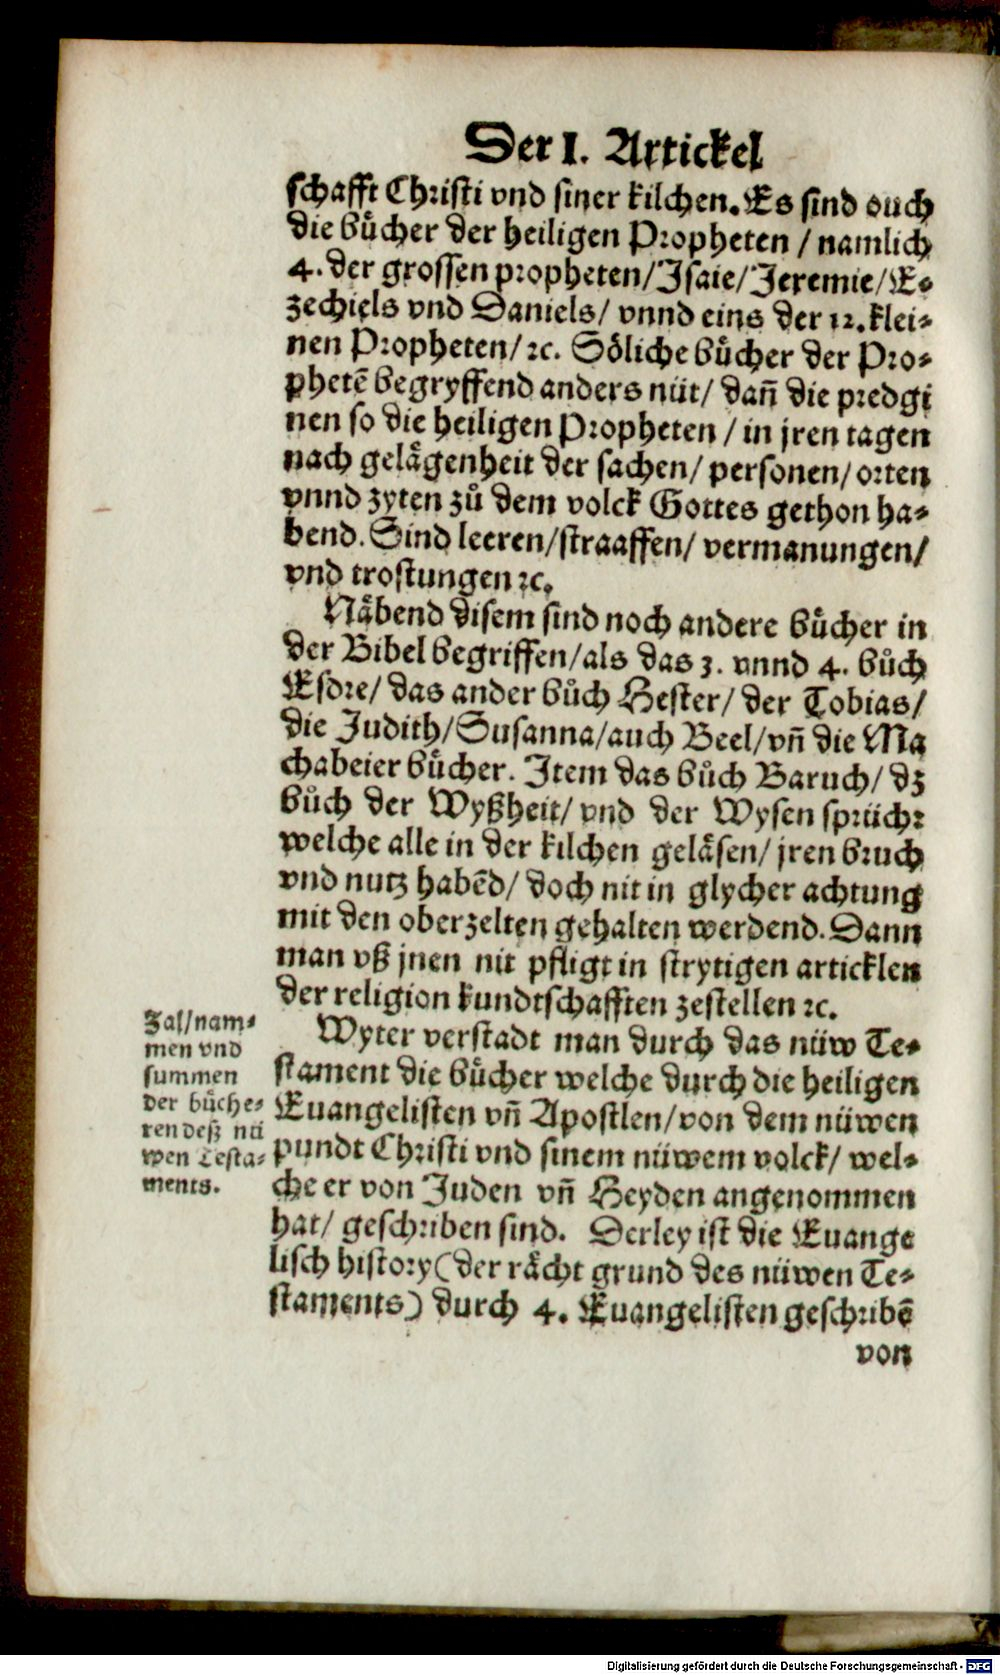 Der I. Artickel
schafft Christi vnd siner kilchen. Es sind ouch
die bücher der heiligen Propheten / namlich
4. der grossen propheten/ Jsaie/ Jeremie/ E⸗
zechiels vnd Daniels/ vnnd eins der 12. klei⸗
nen Propheten/ ꝛc. Söliche bücher der Pro⸗
phetē begryffend anders nüt/ dañ die predgi
nen so die heiligen Propheten / in jren tagen
nach gelägenheit der sachen/ personen/ orten
vnnd zyten zů dem volck Gottes gethon ha⸗
bend. Sind leeren/ straaffen/ vermanungen/
vnd trostungen ꝛc.
Näbend disem sind noch andere bücher in
der Bibel begriffen/ als das 3. vnnd 4. bůch
Esdre/ das ander bůch Hester/ der Tobias/
die Judith/ Susanna/ auch Beel/ vñ die Ma
chabeier bücher. Jtem das bůch Baruch/ dz
bůch der Wyßheit/ vnd der Wysen sprüch:
welche alle in der kilchen geläsen/ jren bruch
vnd nutz habēd/ doch nit in glycher achtung
mit den oberzelten gehalten werdend. Dann
man vß jnen nit pfligt in strytigen articklen
der religion kundtschafften zestellen ꝛc.
Zal/ nam⸗
men vnd
summen
der büche⸗
ren deß nü
wen Testa⸗
ments.
Wyter verstadt man durch das nüw Te⸗
stament die bücher welche durch die heiligen
Euangelisten vñ Apostlen/ von dem nüwen
pundt Christi vnd sinem nüwem volck/ wel⸗
che er von Juden vñ Heyden angenommen
hat/ geschriben sind. Derley ist die Euange
lisch history (der rächt grund des nüwen Te⸗
staments) durch 4. Euangelisten geschribē
von
Digitalisierung gefördert durch die Deutsche Forschungsgemeinschaft - DFG